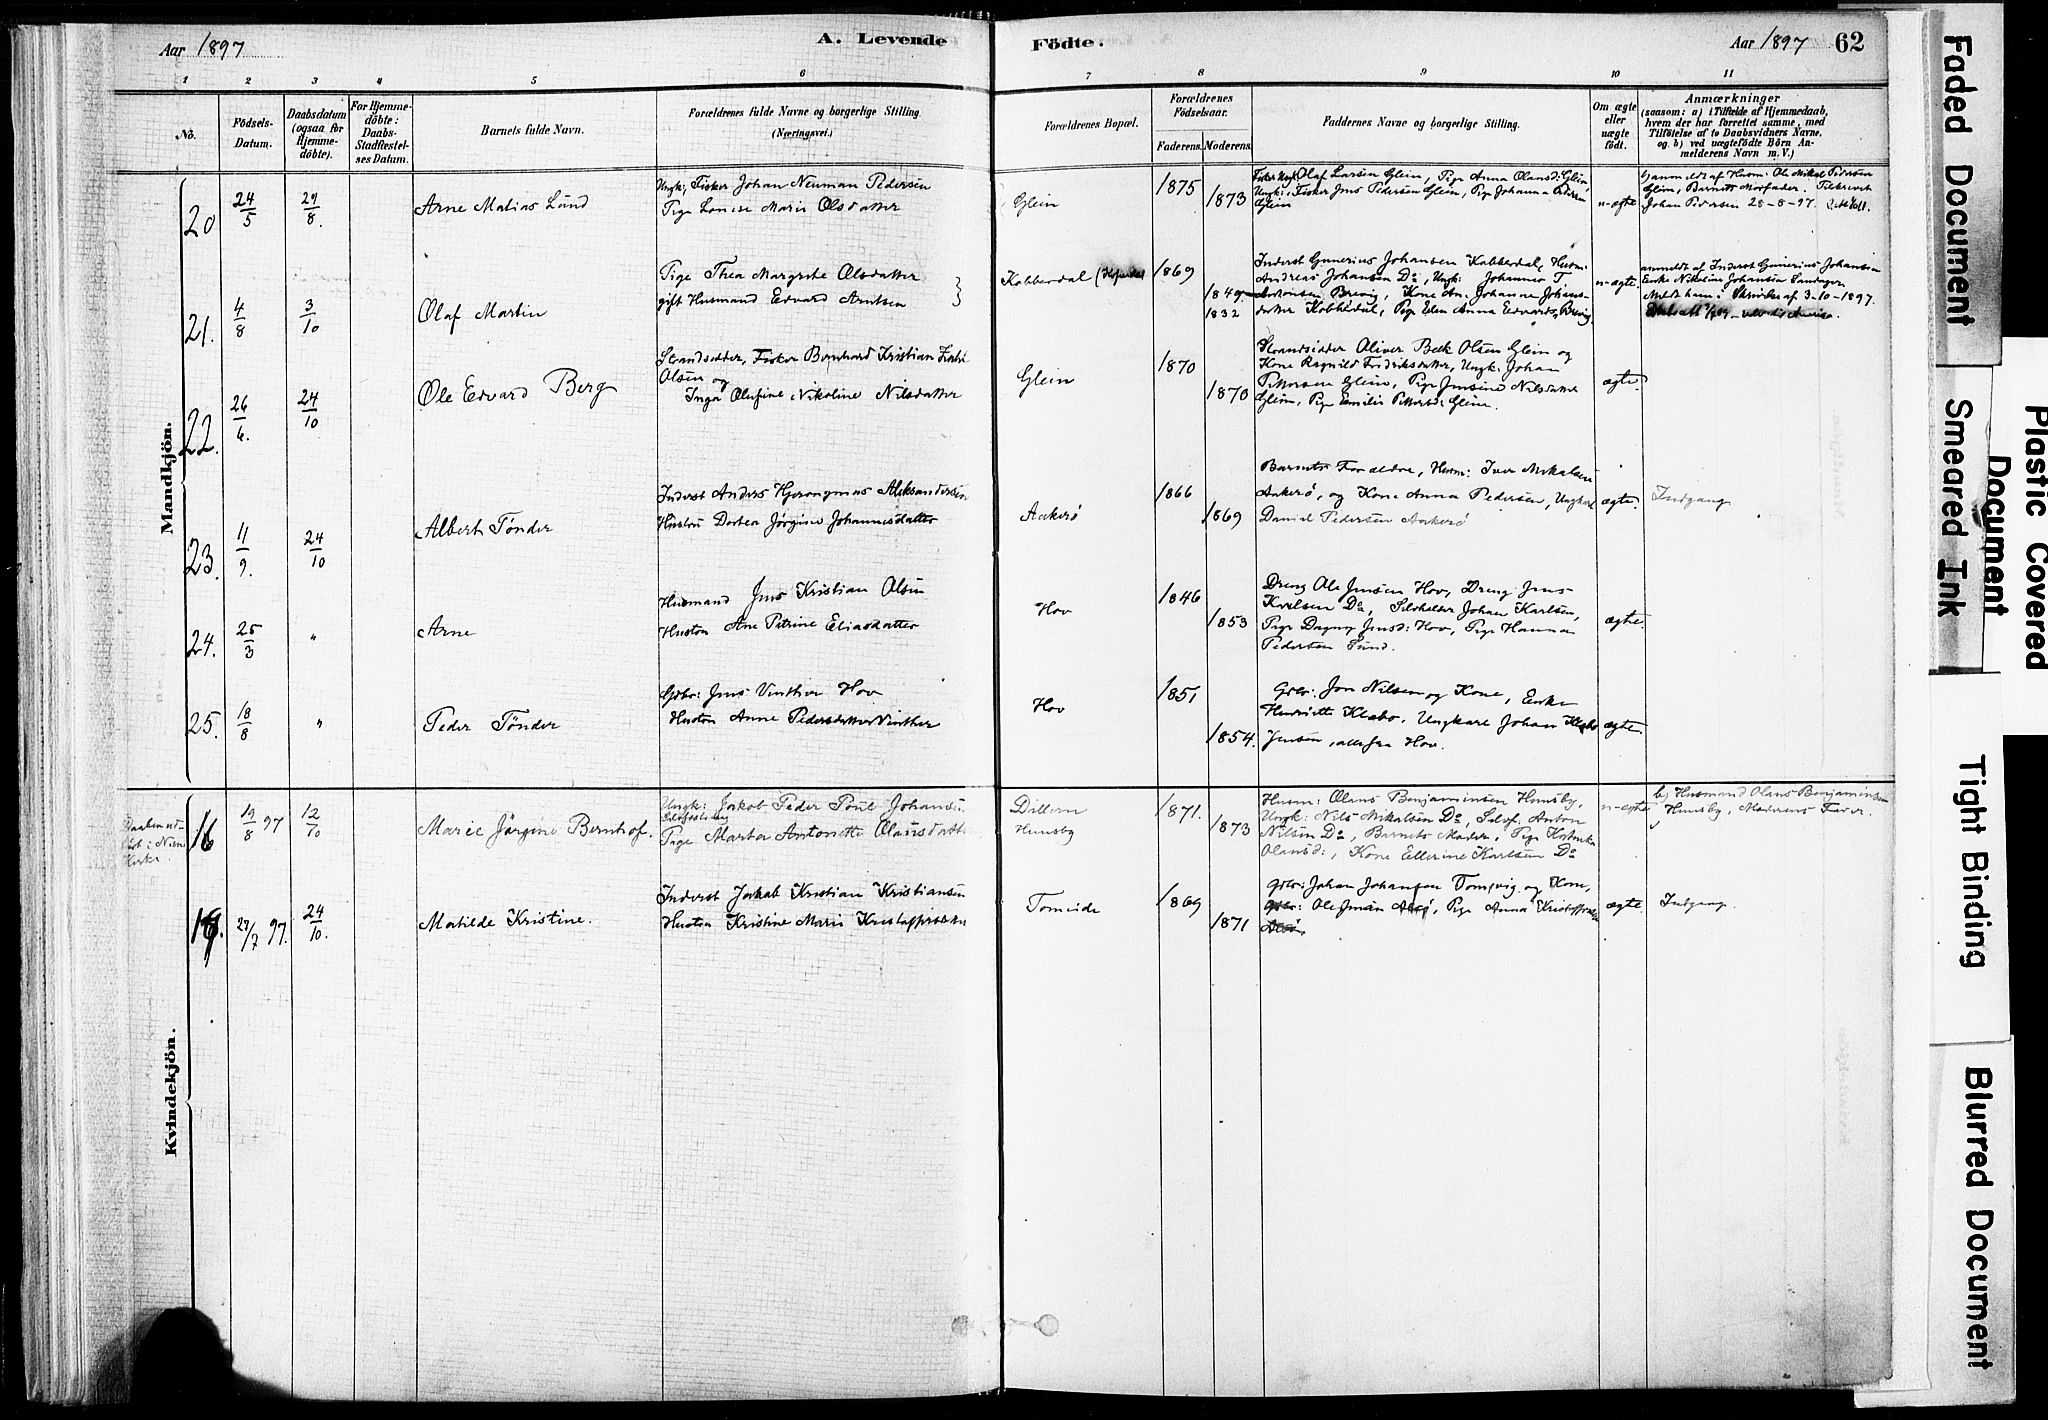 Aar 1897
A. Levende
Födte.
Aar 1897
62
1 2 3 4 5 6 7 8 9 10 11
No.
Födsels-
Datum.
Daabsdatum
(ogsaa for
Hjemme-
döbte).
For Hjemme-
döbte:
Daabs-
Stadfæstel-
ses Datum.
Barnets fulde Navn.
Forældrenes fulde Navne og borgerlige Stilling.
(Næringsvei.)
Forældrenes Bopæl.
Forældrenes
Födselsaar.
Faderens. Moderens.
Faddernes Navne og borgerlige Stilling.
Om ægte
eller
uægte
födt.
Anmærkninger
(saasom: a) i Tilfælde af Hjemmedaab,
hvem der har forrettet samme, med
Tilföielse af to Daabsvidners Navne,
og b) ved uægtefödte Börn An-
melderens Navn m. V.)
Mandkjön.
20 24/5 29/8
Arne Matias Lund
Ungk: Fisker Johan Neuman Pedersen
Pige Louise Marie Olsdatter
Glein
1875
1873
Olaf Larsen Glein, Pige Anna Olausd: Glein,
Ungk: Fisker Jens Pedersen Glein, Pige Johanna
Glein
u-ægte
anmeldt af Husm: Ole Mikal Pedersen
Glein, Barnets Morfader.
Johan Pedersen 28-8-97.
21. 4/8 3/10
Olaf Martin
Pige Thea Margrete Olsdatter
gift Husmand Edvard Arntsen
Kobberdal
1869
1849
1832
Inderst Gunerius Johansen Kobberdal, Husm:
Andreas Johansen Do, Ungk: Johannes T
Antonsen Brevig, Kone An. Johanne Johans-
datter Kobberdal, Pige Elen Anna Edvards: Brevig
u-ægte.
anmeldt af Inderst Gunerius Johansen
Enke Nikoline Johansen
Skrivelse af 3-10-1897.
22. 26/6. 24/10
Ole Edvard Berg
Strandsidder, Fisker Bernhard Kristian
Olsen og
Inga Olufine Nikoline Nilsdatter
Glein
1870
1870
Strandsidder Oliver Bek Olsen Glein og
Kone Ragnild Fredriksdatter, Ungk: Johan
Pettersen Glein, Pige Jensine Nilsdatter
Glein, Pige Emilie Pettersd: Glein.
ægte
23. 11/9. 24/10
Albert Tönder
Inderst Anders Hjeronymus Aleksandersen
Hustru Dortea Jörgine Johannesdatter
Aakerö
1866
1869
Barnets Forældre, Husm: Iver Mikalsen
Aakerö, og Kone Anna Pedersen, Ungkarl
Daniel Pedersen Aakerö
ægte.
Indgang
24. 25/3 "
Arne
Husmand Jens Kristian Olsen
Hustru Ane Petrine Eliasdatter
Hov
1846
1853
Dreng Ole Jensen Hov, Dreng Jens
Karlsen Do, Selvholder Johan Karlsen,
Pige Dagny Jensd: Hov, Pige Hanna
Pedersen Sund.
ægte.
25. 18/8 "
Peder Tönder
Gdbr: Jens Vinther Hov
Hustru Anne Pedersdatter Vinther
Hov
1851
1854.
Gdbr: Jon Nilsen og Kone, Enke
Henriette Klæbo, Ungkarl Johan Klæbo
Jensen, alle fra Hov.
ægte.
Kvindekjön.
16 19/8 97 12/10
Marie Jörgine Bernhof.
Ungk: Jakob Peder Poul Johansen
Pige Marta Antonette Olausdatter
Dillern
Hunsby
1871.
1873
Husm: Olaus Benjaminsen Hunsby,
Ungk: Nils Mikalsen Do, Selvf. Anton
Nilsen Do, Barnets Moder, Pige
Olausd:, Kone Ellerine Karlsen Do
u-ægte
b) Husmand Olaus Benjaminsen
Hunsby, Moderens Fader.
17. 27/7 97. 24/10.
Matilde Kristine.
Inderst Jakob Kristian Kristiansen
Hustru Kristine Marie
Tomeide
1869
1871
Gdbr: Johan Johansen Tomsvig og Kone,
Gdbr: Ole Jensen Alsö, Pige Anna
ægte.
Indgang.
Faded Document
Smeared Ink
Plastic Covered
Document
Tight Binding
Blurred Document